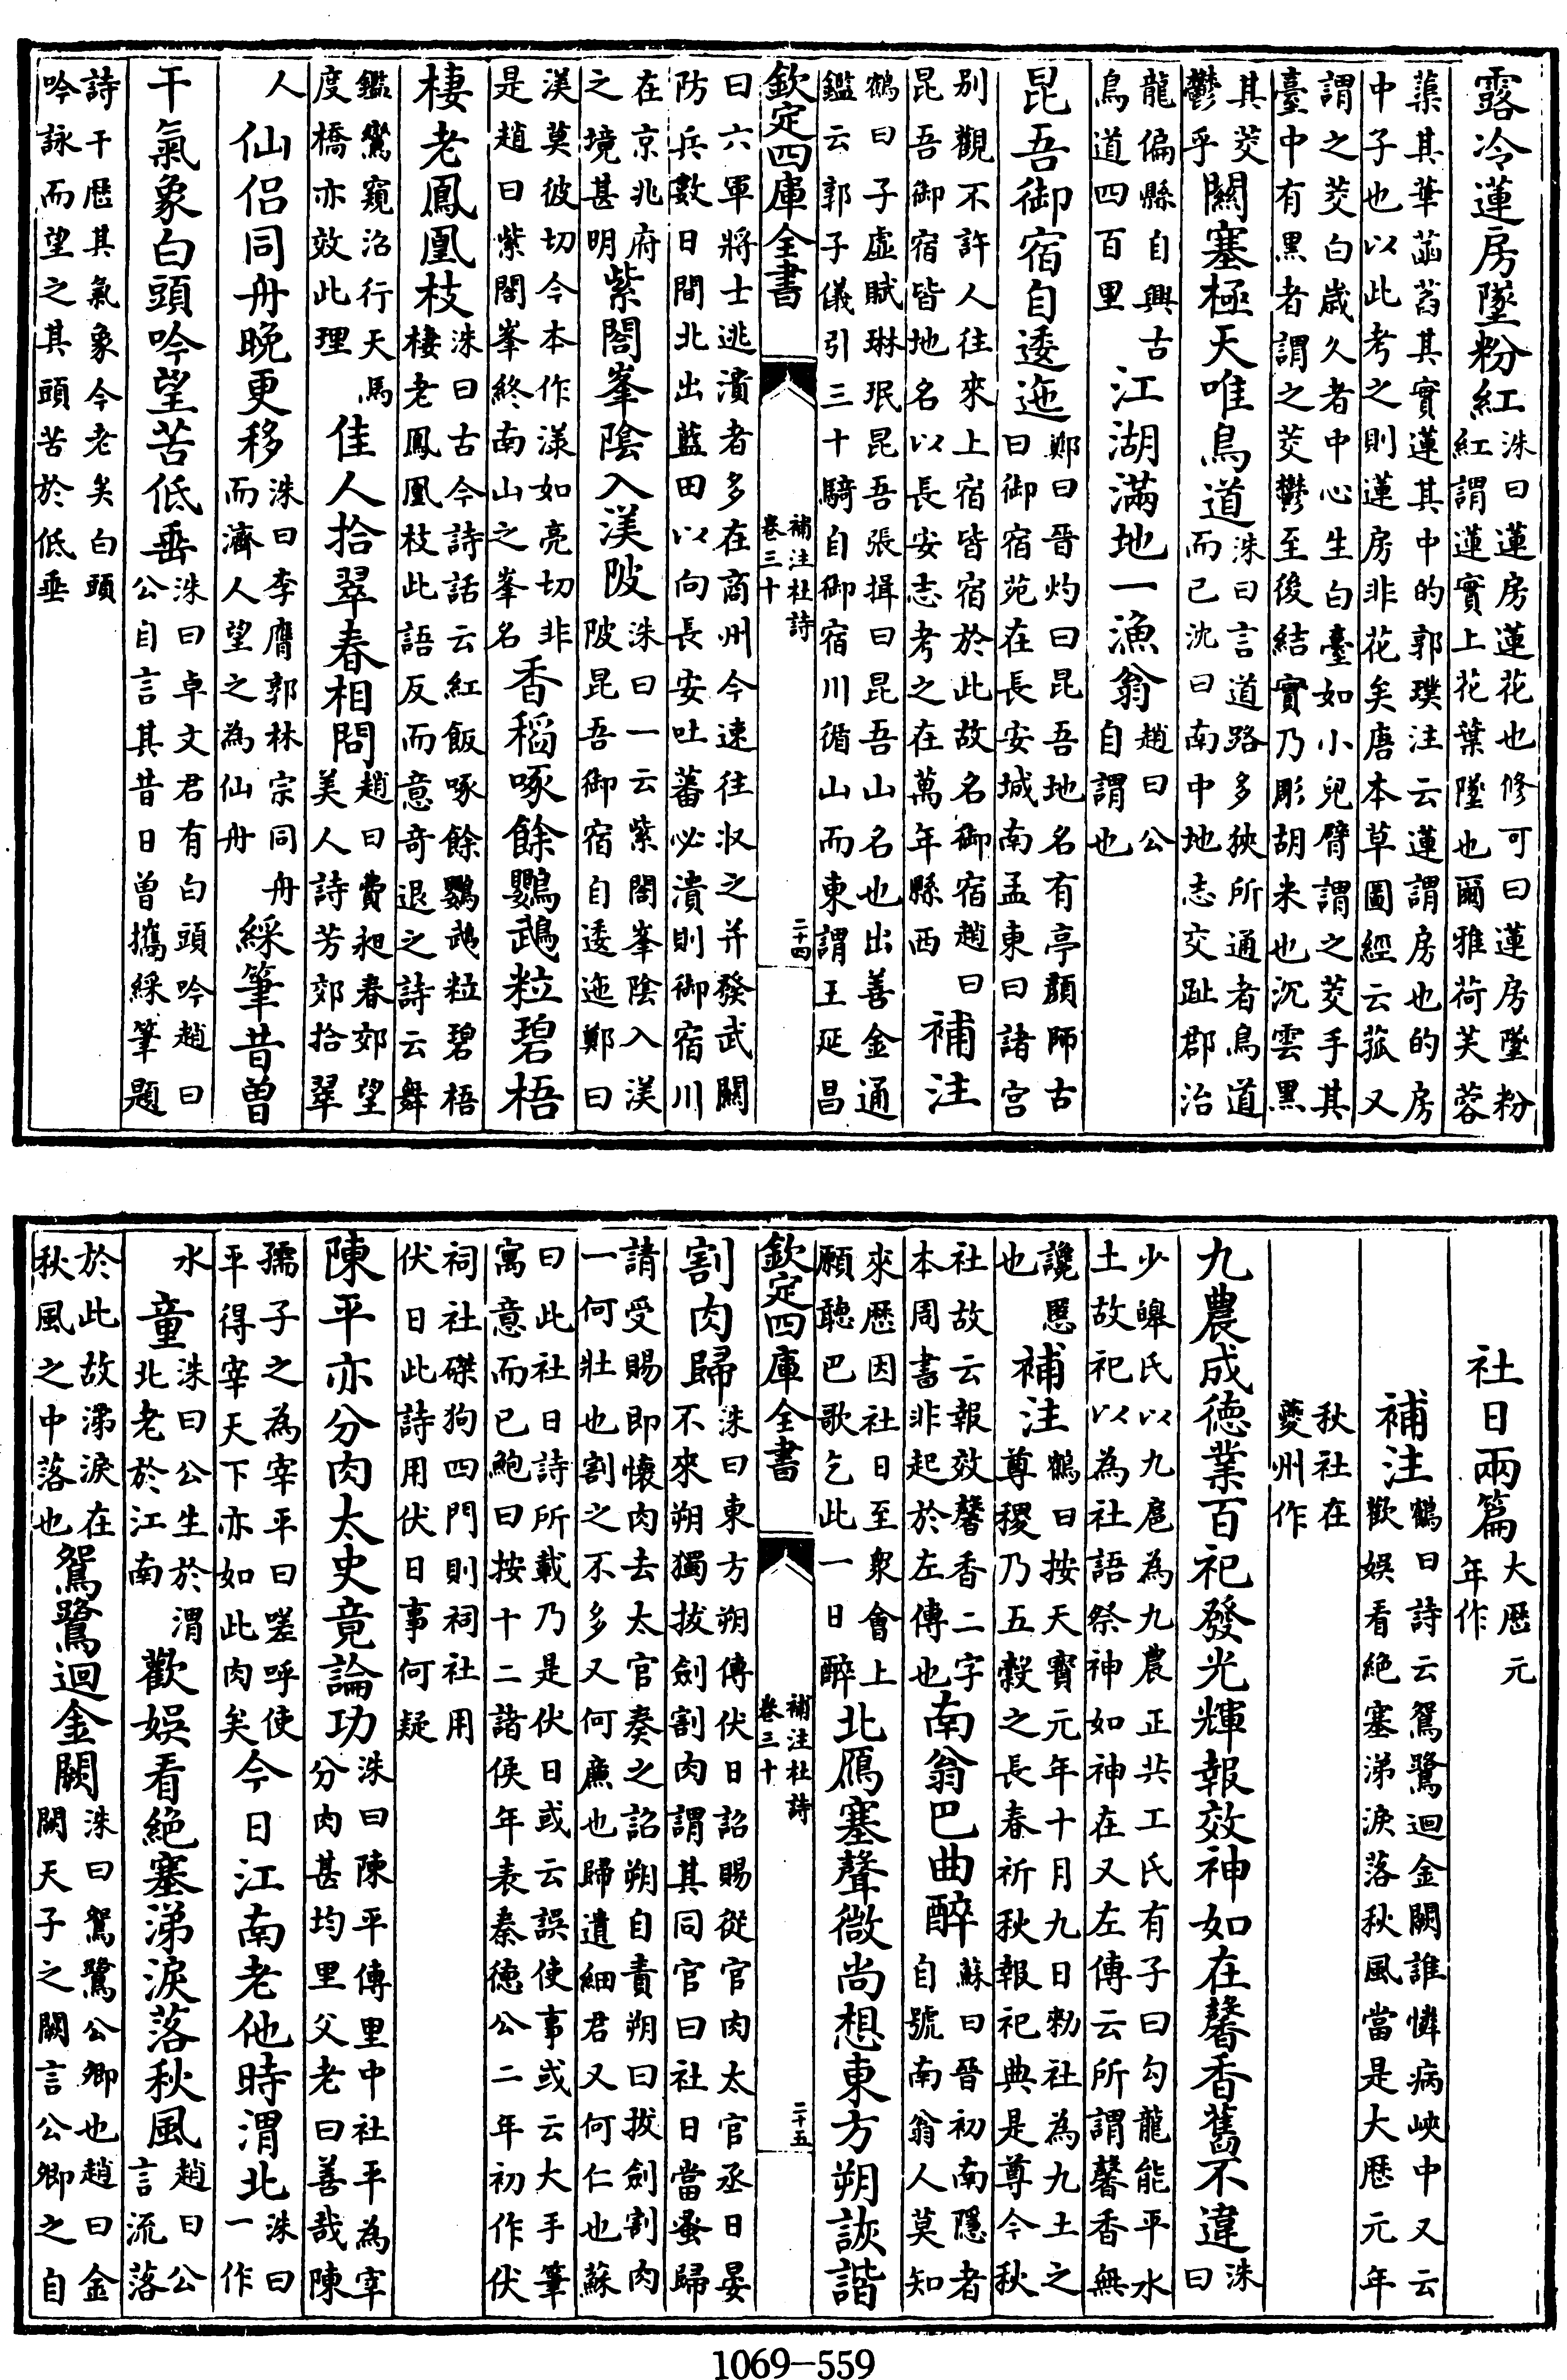 露冷蓮房墜粉紅洙曰蓮房蓮花也修可曰蓮房墜粉紅謂蓮實上花葉墜也爾雅荷芙蓉
蕖其華菡萏其實蓮其中的郭璞注云蓮謂房也的房中子也以此考之則蓮房非花矣唐本草圖經云菰又
謂之茭白歲久者中心生白臺如小兒臂謂之茭手其臺中有黑者謂之茭鬱至後結實乃彫胡米也沉雲黑
其茭鬱乎關塞極天唯鳥道洙曰言道路多狹所通者鳥道而已沈曰南中地志交趾郡治
龍偏縣自興古鳥道四百里江湖滿地一漁翁趙曰公自謂也
昆吾御宿自逶迤鄭曰晉灼曰昆吾地名有亭顔師古曰御宿苑在長安城南孟東曰諸宫
别觀不許人往來上宿皆宿於此故名御宿趙曰昆吾御宿皆地名以長安志考之在萬年縣西補注
鶴曰子虛賦琳珉昆吾張揖曰昆吾山名也出善金通鑑云郭子儀引三十騎自御宿川循山而東謂王延昌
欽定四庫全書 補注杜詩卷三十 二十四
曰六軍將士逃潰者多在商州今速往収之并發武關防兵數日間北出藍田以向長安吐蕃必潰則御宿川
在京兆府之境甚明紫閣峯陰入渼陂洙曰一云紫閣峯陰入渼陂昆吾御宿自逶迤鄭曰
渼莫彼切今本作漾如亮切非是趙曰紫閣峯終南山之峯名香稻啄餘鸚鵡粒碧梧
棲老鳳凰枝洙曰古今詩話云紅飯啄餘鸚鵡粒碧梧棲老鳳凰枝此語反而意奇退之詩云舞
鑑鸞窺沼行天馬度橋亦效此理佳人拾翠春相問趙曰費昶春郊望美人詩芳郊拾翠
人仙侣同舟晚更移洙曰李膺郭林宗同舟而濟人望之為仙舟綵筆昔曽
干氣象白頭吟望苦低垂洙曰卓文君有白頭吟趙曰公自言其昔日曽攜綵筆題
詩干歴其氣象今老矣白頭吟詠而望之其頭苦於低垂
社日兩篇大歴元年作
補注鶴曰詩云鴛鷺迴金闕誰憐病峽中又云歡娱看絶塞涕淚落秋風當是大歴元年
秋社在夔州作
九農成德業百祀發光輝報效神如在馨香舊不違洙曰
少皥氏以九扈為九農正共工氏有子曰勾龍能平水土故祀以為社語祭神如神在又左傳云所謂馨香無
讒慝也補注鶴曰按天寳元年十月九日勑社為九土之尊稷乃五穀之長春祈秋報祀典是尊今秋
社故云報效馨香二字本周書非起於左傳也南翁巴曲醉蘇曰晉初南隱者自號南翁人莫知
來歴因社日至衆會上願聽巴歌乞此一日醉北鴈塞聲微尚想東方朔詼諧
欽定四庫全書 補注杜詩卷三十 二十五
割肉歸洙曰東方朔傳伏日詔賜從官肉太官丞日晏不來朔獨拔劍割肉謂其同官曰社日當蚤歸
請受賜即懷肉去太官奏之詔朔自責朔曰拔劍割肉一何壮也割之不多又何廉也歸遺細君又何仁也蘇
曰此社日詩所載乃是伏日或云誤使事或云大手筆寓意而已鮑曰按十二諸侯年表秦德公二年初作伏
祠社磔狗四門則祠社用伏日此詩用伏日事何疑
陳平亦分肉太史竟論功洙曰陳平傳里中社平為宰分肉甚均里父老曰善哉陳
孺子之為宰平曰嗟呼使平得宰天下亦如此肉矣今日江南老他時渭北洙曰一作
水童洙曰公生於渭北老於江南歡娱看絶塞涕淚落秋風趙曰公言流落
於此故涕淚在秋風之中落也鴛鷺迴金闕洙曰鴛鷺公卿也趙曰金闕天子之闕言公卿之自
1069—559